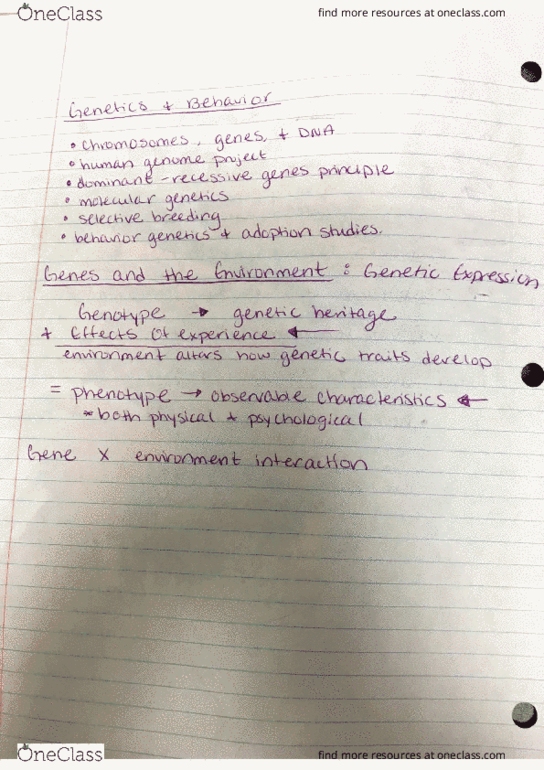 OneClass
find more resources at oneclass.com
Genetics + Behavior
• chromosomes, genes, + DNA
• human genome project
• dominant-recessive genes principle
• molecular genetics
• selective breeding
• behavior genetics + adoption studies.
Genes and the Environment : Genetic Expression
Genotype → genetic heritage
+ Effects of experience ←
environment alters how genetic traits develop
= phenotype → observable characteristics ←
* both physical + psychological
Gene X environment interaction
OneClass
find more resources at oneclass.com